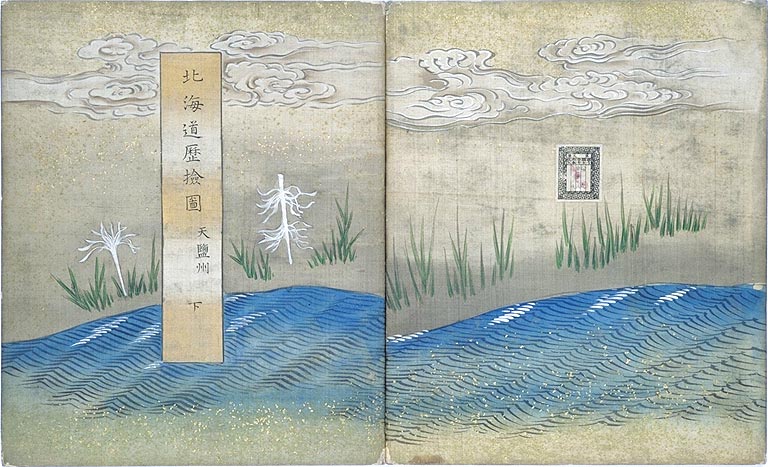 北海道歴撿圖
天鹽州
下